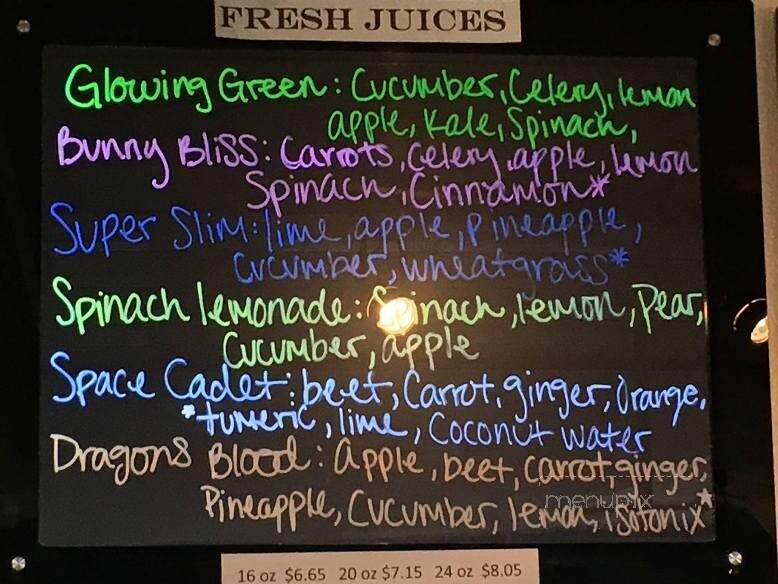 FRESH JUICES
Glowing Green: Cucumber, Celery, lemon
apple, Kale, Spinach,
Bunny Bliss: Carrots, celery, apple, lemon
Spinach, Cinnamon*
Super Slim: lime, apple, pineapple,
cucumber, wheatgrass*
Spinach lemonade: Spinach, lemon, Pear,
Cucumber, apple
Space Cadet: beet, Carrot, ginger, Orange,
*tumeric, lime, Coconut water
Dragons Blood: Apple, beet, carrot, ginger,
Pineapple, Cucumber, lemon, isotonix*
menupix
16 oz $6.65 20 oz $7.15 24 oz $8.05